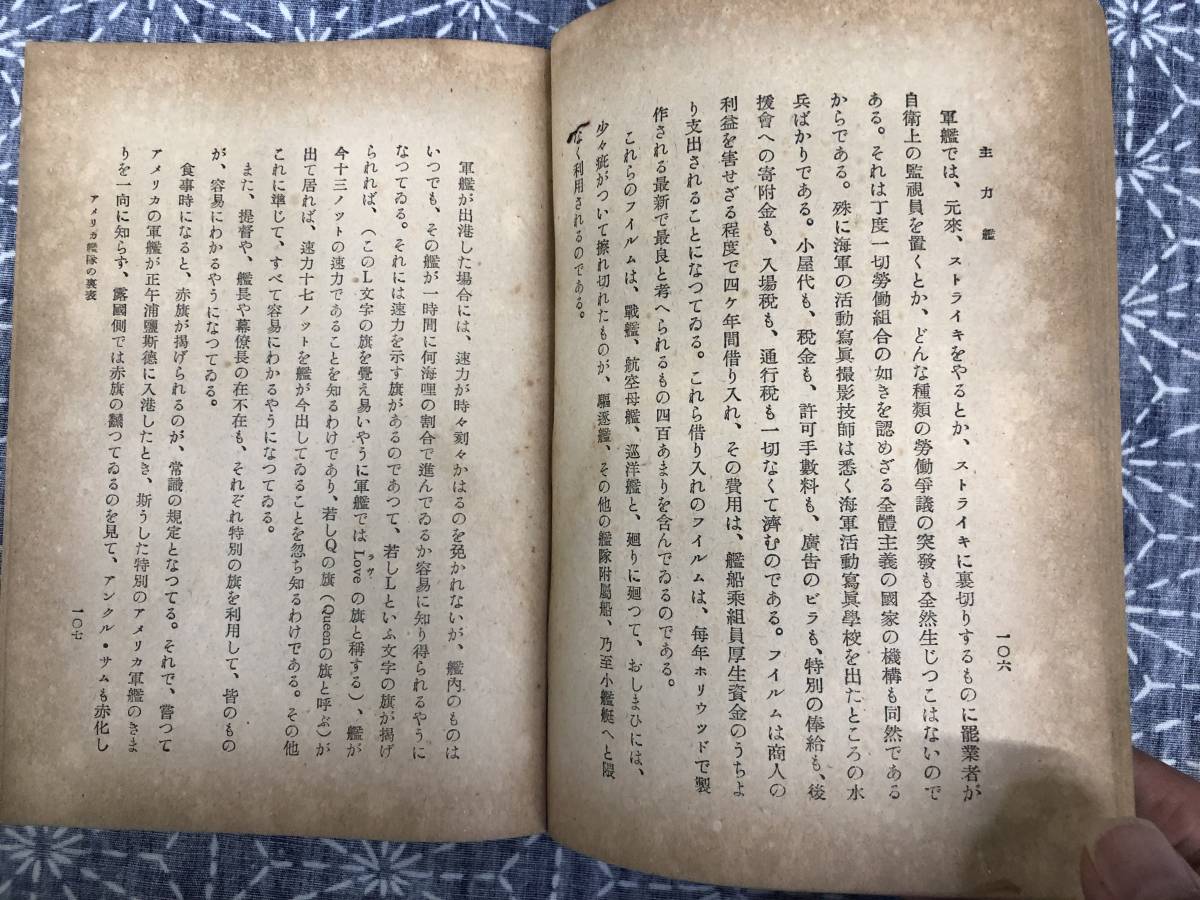 主力艦
一〇六
軍艦では、元來、ストライキをやるとか、ストライキに裏切りするものに罷業者が
自衛上の監視員を置くとか、どんな種類の勞働爭議の突發も全然生じつこはないので
ある。それは丁度一切勞働組合の如きを認めざる全體主義の國家の機構も同然である
からである。殊に海軍の活動寫眞撮影技師は悉く海軍活動寫眞學校を出たところの水
兵ばかりである。小屋代も、税金も、許可手數料も、廣告のビラも、特別の俸給も、後
援會への寄附金も、入場税も、通行税も一切なくて濟むのである。フイルムは商人の
利益を害せざる程度で四ケ年間借り入れ、その費用は、艦船乘組員厚生資金のうちよ
り支出されることになつてゐる。これら借り入れのフイルムは、毎年ホリウツドで製
作される最新で最良と考へられるもの四百あまりを含んでゐるのである。
これらのフイルムは、戰艦、航空母艦、巡洋艦と、廻りに廻つて、おしまひには、
少々疵がついて擦れ切れたものが、驅逐艦、その他の艦隊附屬船、乃至小艦艇へと隈
なく利用されるのである。
軍艦が出港した場合には、速力が時々刻々かはるのを免かれないが、艦內のものは
いつでも、その艦が一時間に何海哩の割合で進んでゐるか容易に知り得られるやうに
なつてゐる。それには速力を示す旗があるのであつて、若しLといふ文字の旗が揚げ
られれば、（このL文字の旗を覺え易いやうに軍艦ではLoveの旗と稱する）、艦が
ラヴ
今十三ノットの速力であることを知るわけであり、若しQの旗（Queenの旗と呼ぶ）が
出て居れば、速力十七ノットを艦が今出してゐることを忽ち知るわけである。その他
これに準じて、すべて容易にわかるやうになつてゐる。
また、提督や、艦長や幕僚長の在不在も、それぞれ特別の旗を利用して、皆のもの
が、容易にわかるやうになつてゐる。
食事時になると、赤旗が揚げられるのが、常識の規定となつてる。それで、嘗つて
アメリカの軍艦が正午浦鹽斯德に入港したとき、斯うした特別のアメリカ軍艦のきま
りを一向に知らず、露國側では赤旗の飜つてゐるのを見て、アンクル・サムも赤化し
アメリカ艦隊の裏表
一〇七